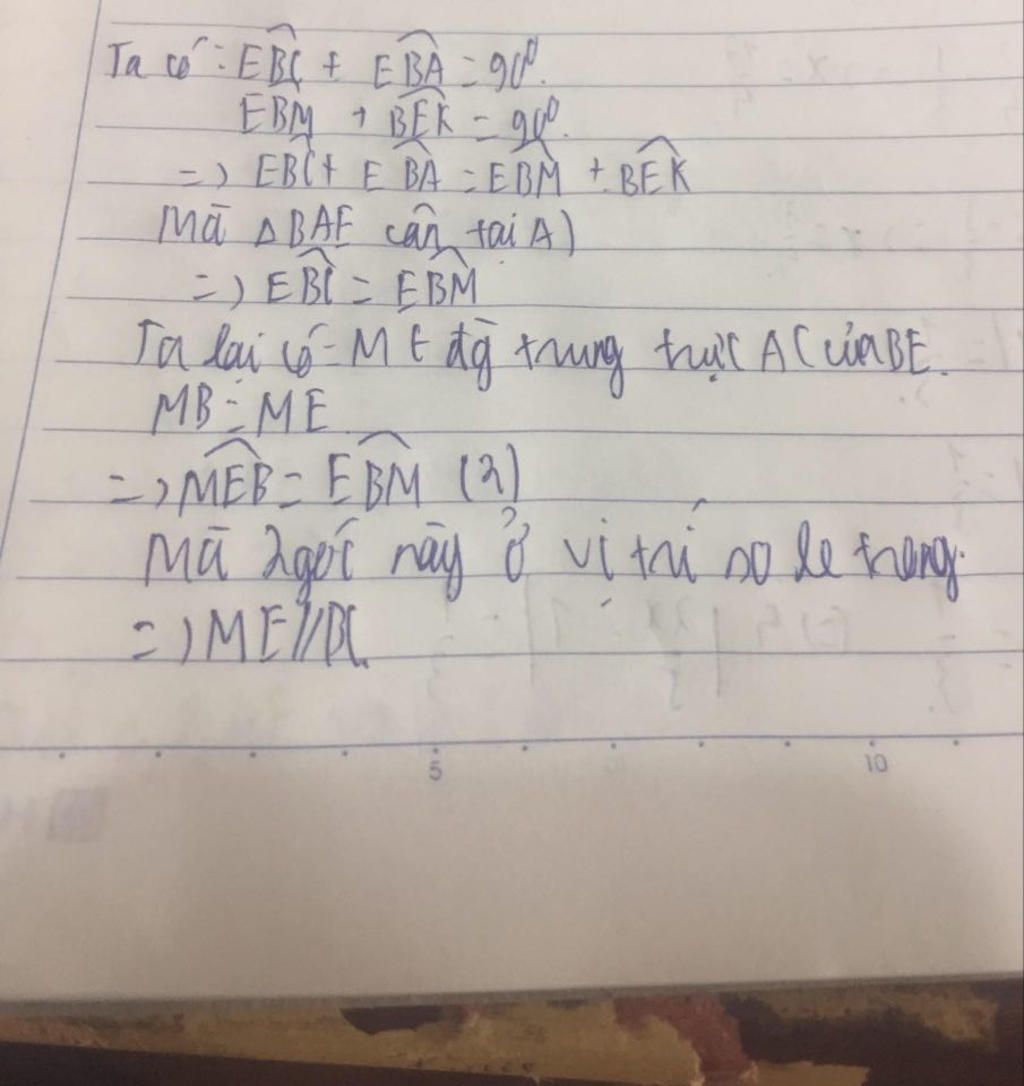 Ta có: EBC + EBA = 90⁰.
EBM + BEK = 90⁰.
=> EBC + EBA = EBM + BEK
Mà △BAE cân tại A)
=> EBC = EBM
Ta lại có = M € đg trung trực AC của BE.
MB = ME
=> MEB = EBM (2)
Mà 2 góc này ở vị trí so le trong.
=> ME // BC.
5 10